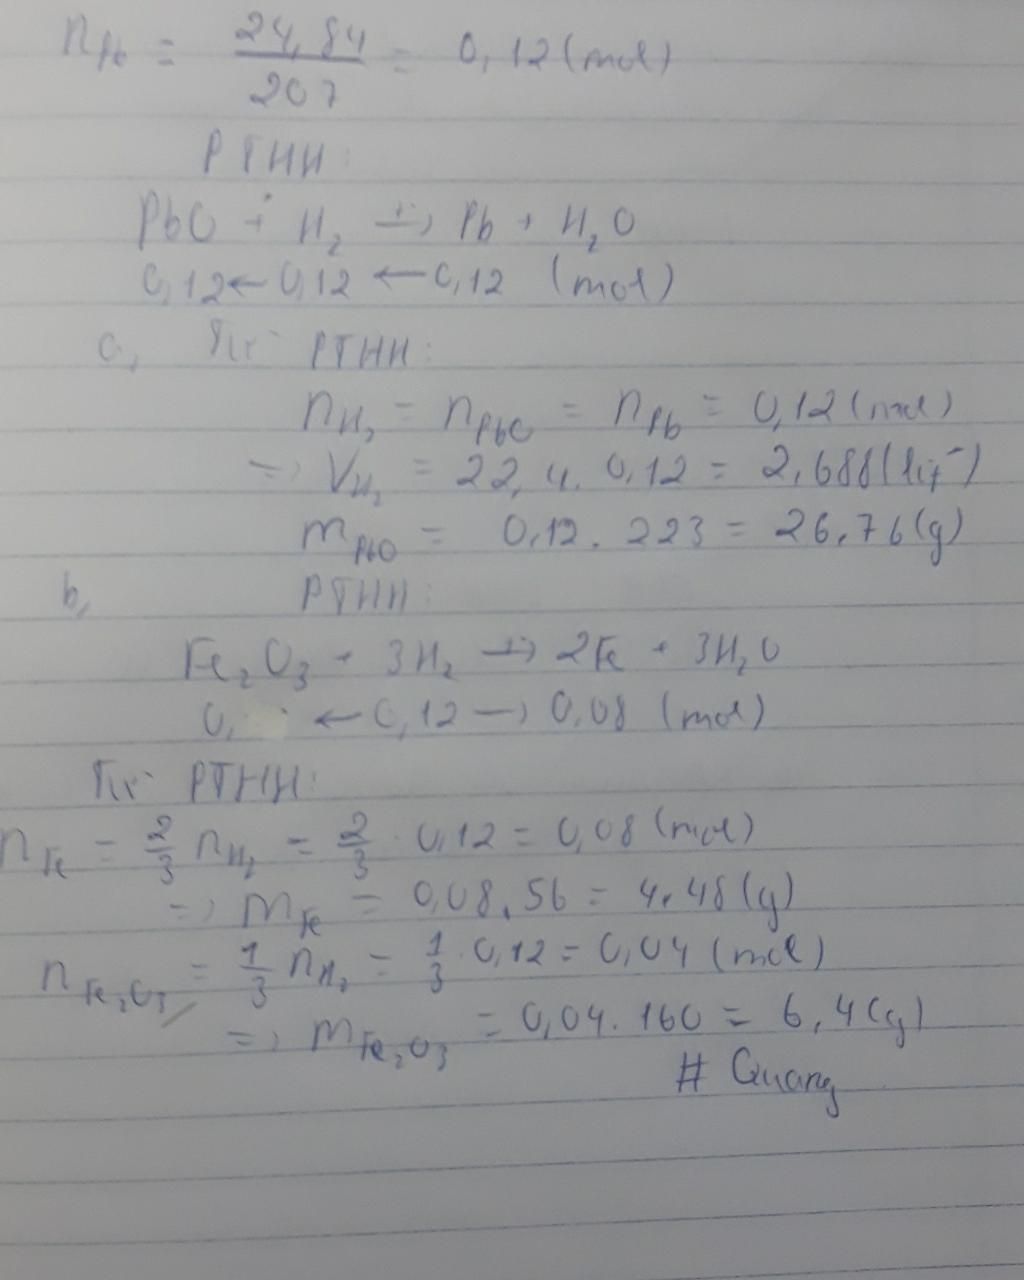 n Pb = 24,84 / 207 = 0,12 (mol)
PTHH:
PbO + H₂ → Pb + H₂O
0,12 ← 0,12 ← 0,12 (mol)
a, Từ PTHH:
n H₂ = n PbO = n Pb = 0,12 (mol)
=> V H₂ = 22,4. 0,12 = 2,688 (lít)
m PbO = 0,12. 223 = 26,76 (g)
b, PTHH:
Fe₂O₃ + 3H₂ → 2Fe + 3H₂O
0, ← 0,12 → 0,08 (mol)
Từ PTHH:
n Fe = 2/3 n H₂ = 2/3 . 0,12 = 0,08 (mol)
=> m Fe = 0,08. 56 = 4,48 (g)
n Fe₂O₃ = 1/3 n H₂ = 1/3 . 0,12 = 0,04 (mol)
=> m Fe₂O₃ = 0,04. 160 = 6,4 (g)
# Quang